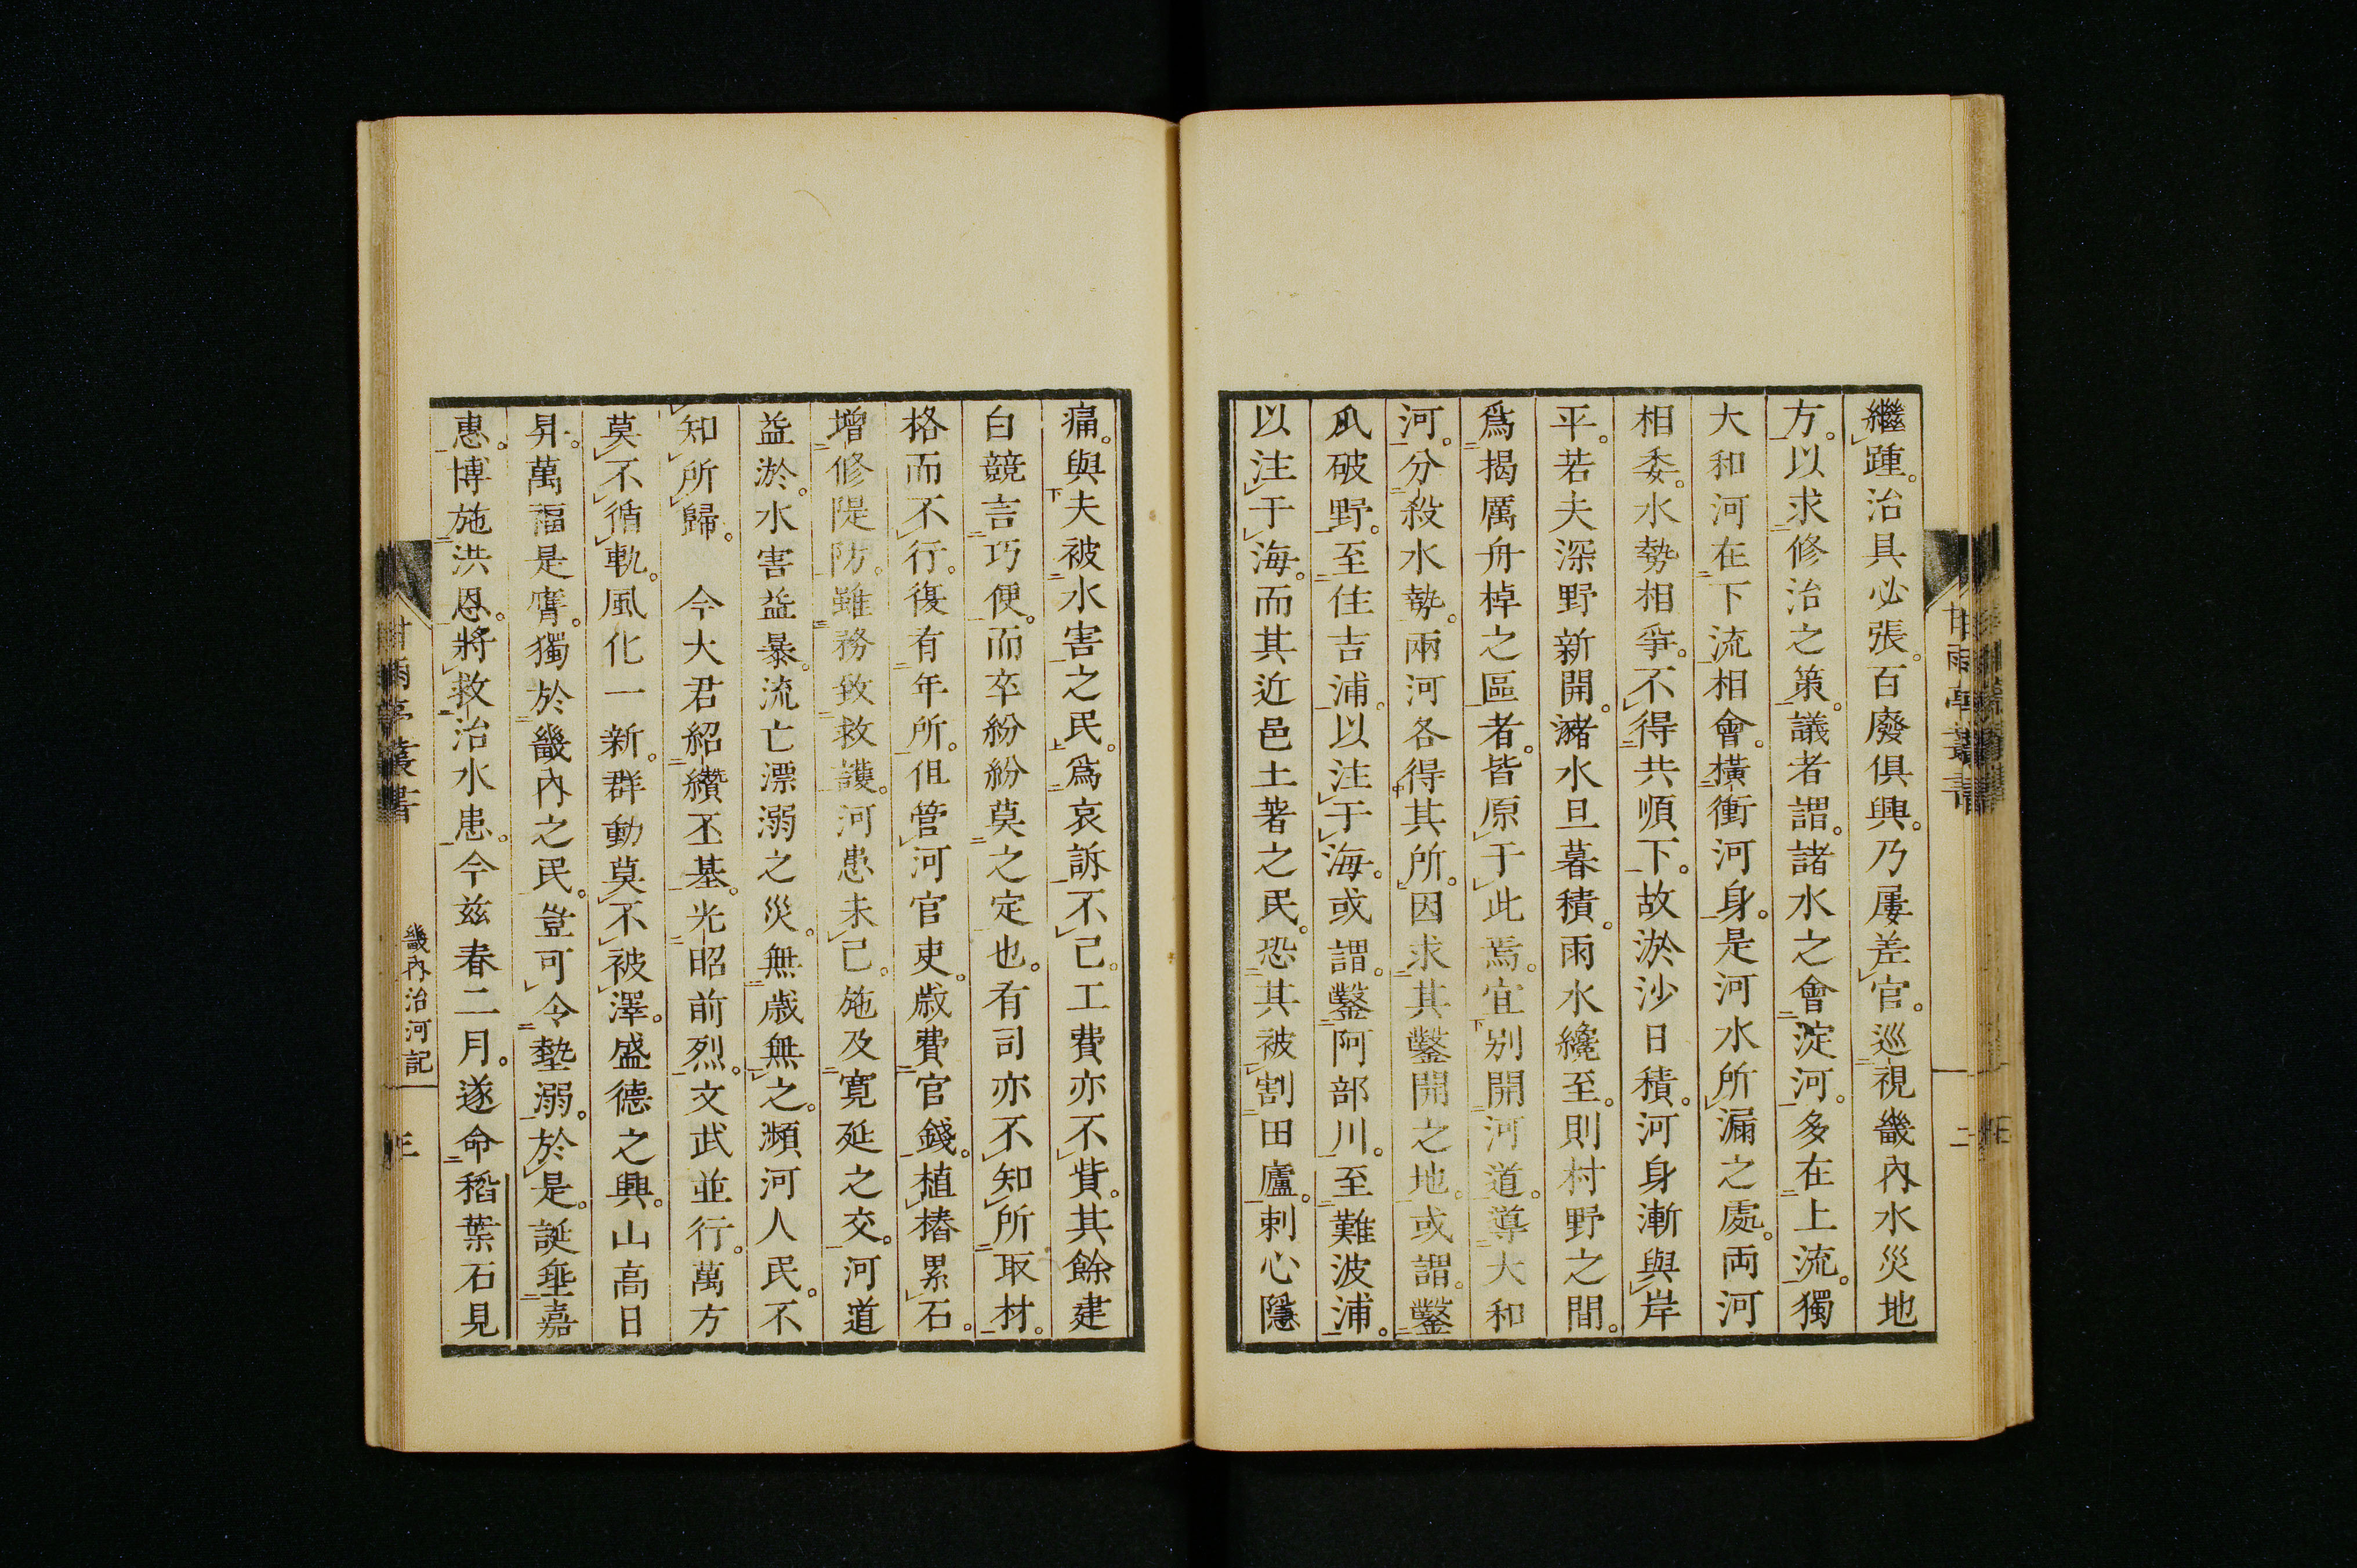 繼踵。治具必張。百廢俱興。乃屢差官。巡視畿內水災地
方。以求修治之策。議者謂。諸水之會淀河。多在上流。獨
大和河在下流相會。橫衝河身。是河水所漏之處。両河
相委。水勢相爭。不得共順下。故淤沙日積。河身漸與岸
平。若夫深野新開。瀦水旦暮積。雨水纔至。則村野之間。
爲揭厲舟棹之區者。皆原于此焉。宜別開河道。導大和
河。分殺水勢。兩河各得其所。因求其鑿開之地。或謂。鑿
爪破野。至住吉浦。以注于海。或謂。鑿阿部川。至難波浦。
以注于海。而其近邑土著之民。恐其被割田廬。刺心隱
甘雨亭叢書
二
痛。與夫被水害之民。爲哀訴不已。工費亦不貲。其餘建
白競言巧便。而卒紛紛莫之定也。有司亦不知所取材。
格而不行。復有年所。伹管河官吏。歲費官錢。植樁累石。
增修隄防。雖務致救護。河患未已。施及寬延之交。河道
益淤。水害益暴。流亡漂溺之災。無歲無之。瀕河人民。不
知所歸。　今大君紹纘丕基。光昭前烈。文武並行。萬方
莫不循軌。風化一新。群動莫不被澤。盛德之興。山高日
昇。萬福是膺。獨於畿內之民。豈可令墊溺。於是。誕垂嘉
惠。博施洪恩。將救治水患。今兹春二月。遂命稻葉石見
甘雨亭叢書
畿內治河記
三